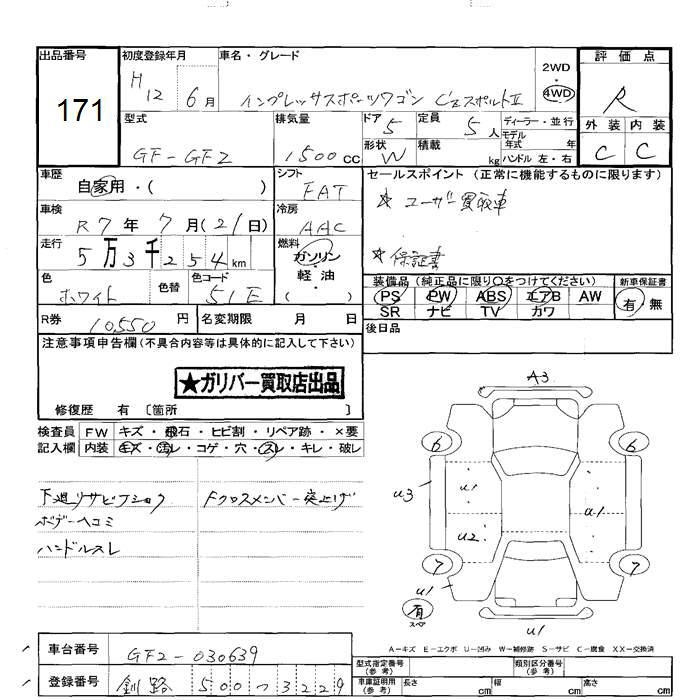 出品番号 171
初度登録年月 H 12 6月
車名・グレード インプレッサスポーツワゴン C'zスポルトII
2WD・4WD
評価点 R
外装 内装
C C
型式 GF-GF2
排気量 1500cc
ドア 5
定員 5人
形状 W
積載 kg
ディーラー・並行
モデル年式 年式
ハンドル 左・右
車歴 自家用・( )
シフト FAT
車検 R7年7月(21日)
冷房 AAC
走行 5万3千254km
燃料 ガソリン
軽油
( )
色 ホワイト
色替
色コード 51E
R券 10,550円
名変期限 月 日
セールスポイント(正常に機能するものに限ります)
☆ ユーザー買取車
☆ 保証書
装備品(純正品に限り○をつけてください)
PS PW ABS エアB AW
SR ナビ TV カワ
新車保証書
有 無
後日品
注意事項申告欄(不具合内容等は具体的に記入して下さい)
★ガリバー買取店出品
修復歴 有 〔箇所 〕
検査員記入欄
FW キズ・飛石・ヒビ割・リペア跡・×要
内装 キズ・汚レ・コゲ・穴・スレ・キレ・破レ
下廻りサビフショク
ボデーヘコミ
ハンドルスレ
Fクロスメンバー突上げ
A3
6 6
U3 U1 U1
U2 U1
7 7
U1
有 スペア
U1
A-キズ E-エクボ U-凹み W-補修跡 S-サビ C-腐食 XX-交換済
車台番号 GF2-030639
登録番号 釧路 500 つ 3229
型式指定番号(参考)
類別区分番号(参考)
車庫証明用(参考) 長さ cm 幅 cm 高さ cm